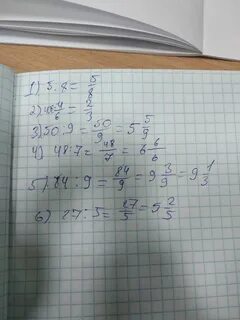 1) 5:8 = 5/8
2) 4:6 = 4/6 = 2/3
3) 50:9 = 50/9 = 5 5/9
4) 48:7 = 48/7 = 6 6/6
5) 84:9 = 84/9 = 9 3/9 = 9 1/3
6) 27:5 = 27/5 = 5 2/5